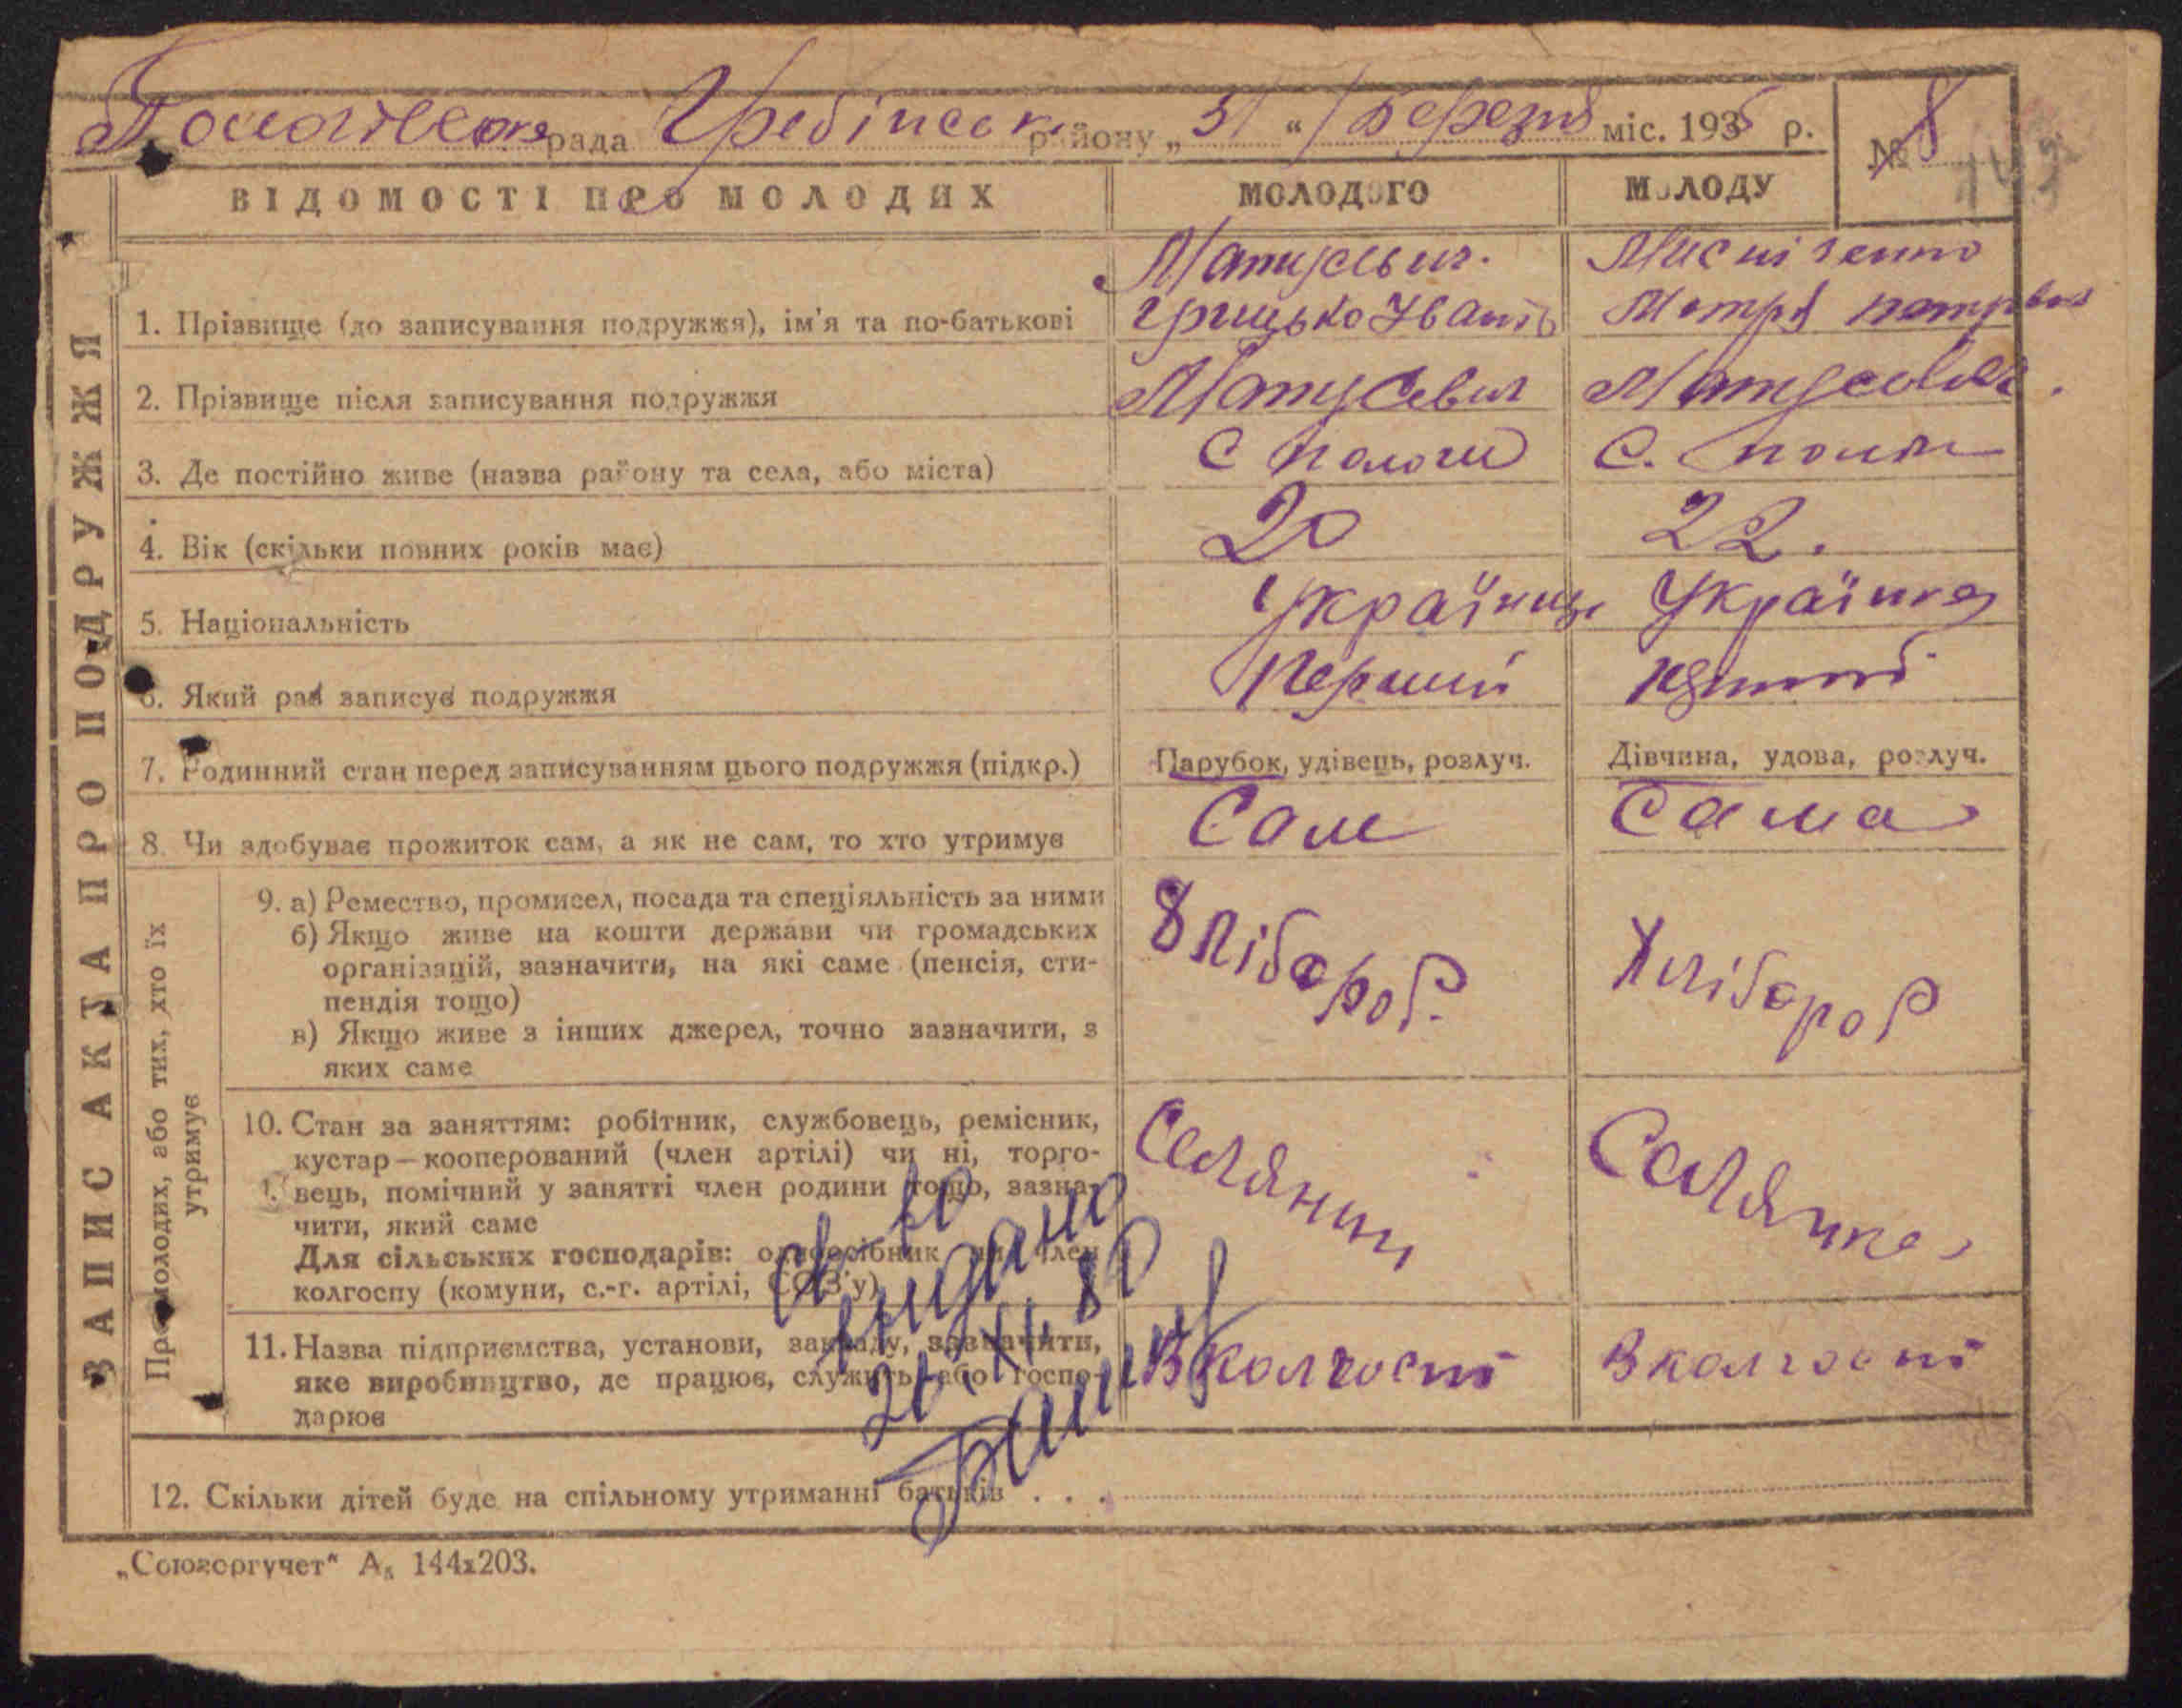 рада Гребінськ району „31“ Березня міс. 1935 р.
№ 8
ВІДОМОСТІ ПРО МОЛОДИХ МОЛОДОГО МОЛОДУ
ЗАПИС АКТА ПРО ПОДРУЖЖЯ
Матусевич
1. Прізвище (до записування подружжя), ім'я та по-батькові Грицько Іванів Мотря Петрівна
2. Прізвище після записування подружжя Матусевич
3. Де постійно живе (назва району та села, або міста) С Пологи С.
4. Вік (скільки повних років має) 20 22.
5. Національність Українець Українка
6. Який раз записує подружжя Перший
7. Родинний стан перед записуванням цього подружжя (підкр.) Парубок, удівець, розлуч. Дівчина, удова, розлуч.
8. Чи здобуває прожиток сам, а як не сам, то хто утримує Сам Сама
Про молодих, або тих, хто їх
утримує
9. а) Ремество, промисел, посада та спеціяльність за ними
б) Якщо живе на кошти держави чи громадських
організацій, зазначити, на які саме (пенсія, сти-
пендія тощо)
в) Якщо живе з інших джерел, точно зазначити, з
яких саме
Хлібороб. Хлібороб
10. Стан за заняттям: робітник, службовець, ремісник,
кустар—кооперований (член артілі) чи ні, торго-
вець, помічний у занятті член родини тощо, зазна-
чити, який саме
Для сільських господарів: одноосібник чи член
колгоспу (комуни, с.-г. артілі, СОЗ'у)
Селянин Селянка
11. Назва підприємства, установи, закладу, зазначити,
яке виробництво, де працює, служить або госпо-
дарює
В колгоспі В колгоспі
св-во
видано
12. Скільки дітей буде на спільному утриманні батьків . . .
„Союзоргучет“ А₅ 144х203.